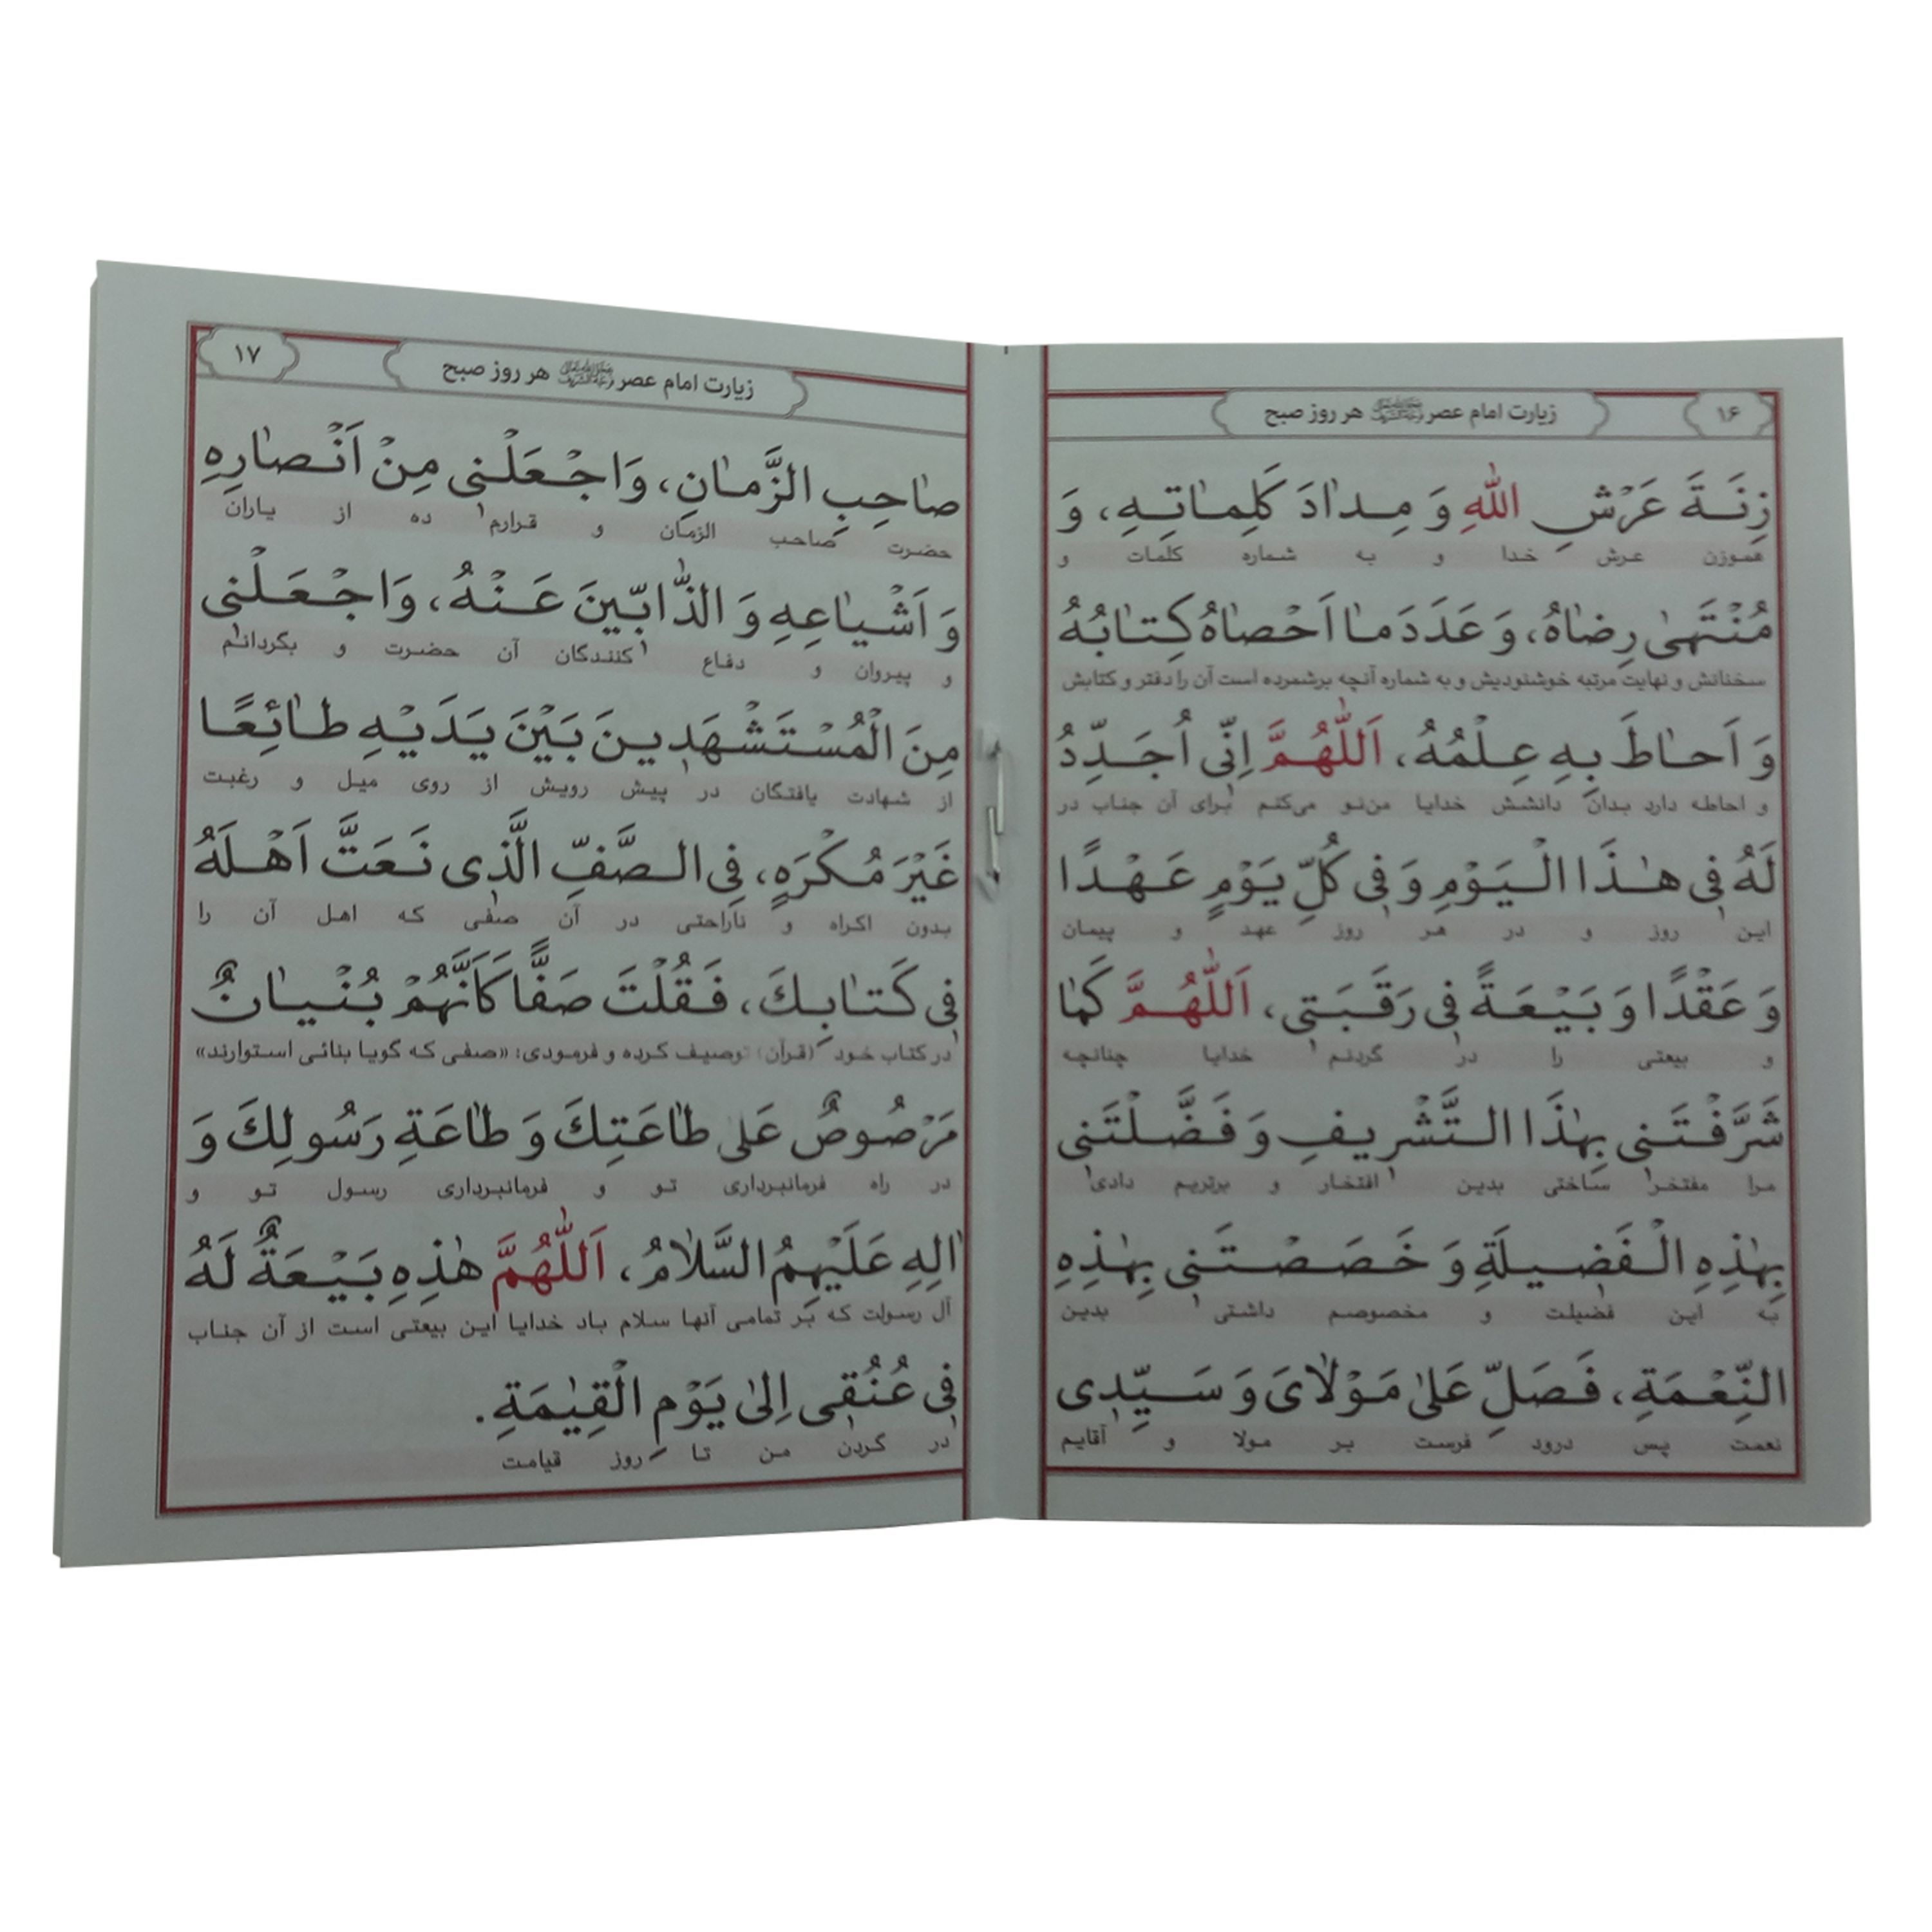 ۱۶
زیارت امام عصر هر روز صبح
زِنَةَ عَرْشِ اللّٰهِ وَ مِدادَ كَلِمٰاتِهِ، وَ
هموزن عرش خدا و به شماره کلمات و
مُنْتَهىٰ رِضٰاهُ، وَ عَدَدَ مٰا اَحْصٰاهُ كِتٰابُهُ
سخنانش و نهایت مرتبه خوشنودیش و به شماره آنچه برشمرده است آن را دفتر و کتابش
وَ اَحٰاطَ بِهِ عِلْمُهُ، اَللّٰهُمَّ اِنّى اُجَدِّدُ
و احاطه دارد بدان دانشش خدایا من‌نو می‌کنم برای آن جناب در
لَهُ فى هٰذَا الْيَوْمِ وَ فى كُلِّ يَوْمٍ عَهْدًا
این روز و در هر روز عهد و پیمان
وَ عَقْدًا وَ بَيْعَةً فى رَقَبَتى، اَللّٰهُمَّ كَمٰا
و بیعتی را در گردنم خدایا چنانچه
شَرَّفْتَنى بِهٰذَا التَّشْريفِ وَ فَضَّلْتَنى
مرا مفتخر ساختی بدین افتخار و برتریم دادی
بِهٰذِهِ الْفَضيلَةِ وَ خَصَصْتَنى بِهٰذِهِ
به این فضیلت و مخصوصم داشتی بدین
النِّعْمَةِ، فَصَلِّ عَلىٰ مَوْلاىَ وَ سَيِّدِى
نعمت پس درود فرست بر مولا و آقایم
۱۷
زیارت امام عصر هر روز صبح
صٰاحِبِ الزَّمٰانِ، وَاجْعَلْنى مِنْ اَنْصٰارِهِ
حضرت صاحب الزمان و قرارم ده از یاران
وَ اَشْيٰاعِهِ وَ الذّٰابّينَ عَنْهُ، وَاجْعَلْنى
و پیروان و دفاع کنندگان آن حضرت و بگردانم
مِنَ الْمُسْتَشْهَدينَ بَيْنَ يَدَيْهِ طٰائِعًا
از شهادت یافتگان در پیش رویش از روی میل و رغبت
غَيْرَ مُكْرَهٍ، فِى الصَّفِّ الَّذى نَعَتَّ اَهْلَهُ
بدون اکراه و ناراحتی در آن صفی که اهل آن را
فى كَتٰابِكَ، فَقُلْتَ صَفًّا كَاَنَّهُمْ بُنْيٰانٌ
در کتاب خود (قرآن) توصیف کرده و فرمودی: «صفی که گویا بنائی استوارند»
مَرْصُوصٌ عَلىٰ طٰاعَتِكَ وَ طٰاعَةِ رَسُولِكَ وَ
در راه فرمانبرداری تو و فرمانبرداری رسول تو و
اٰلِهِ عَلَيْهِمُ السَّلاٰمُ، اَللّٰهُمَّ هٰذِهِ بَيْعَةٌ لَهُ
آل رسولت که بر تمامی آنها سلام باد خدایا این بیعتی است از آن جناب
فى عُنُقى اِلىٰ يَوْمِ الْقِيٰمَةِ.
در گردن من تا روز قیامت